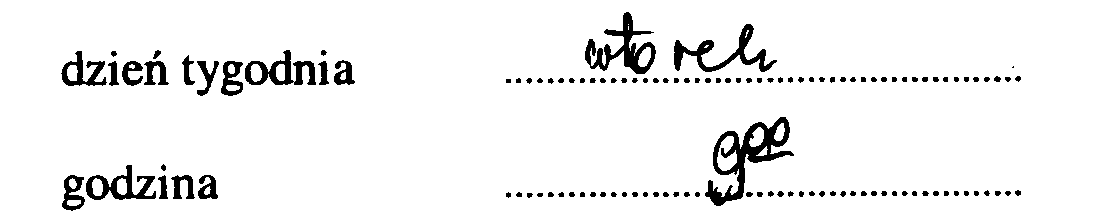 dzień tygodnia wtorek
godzina 9⁰⁰